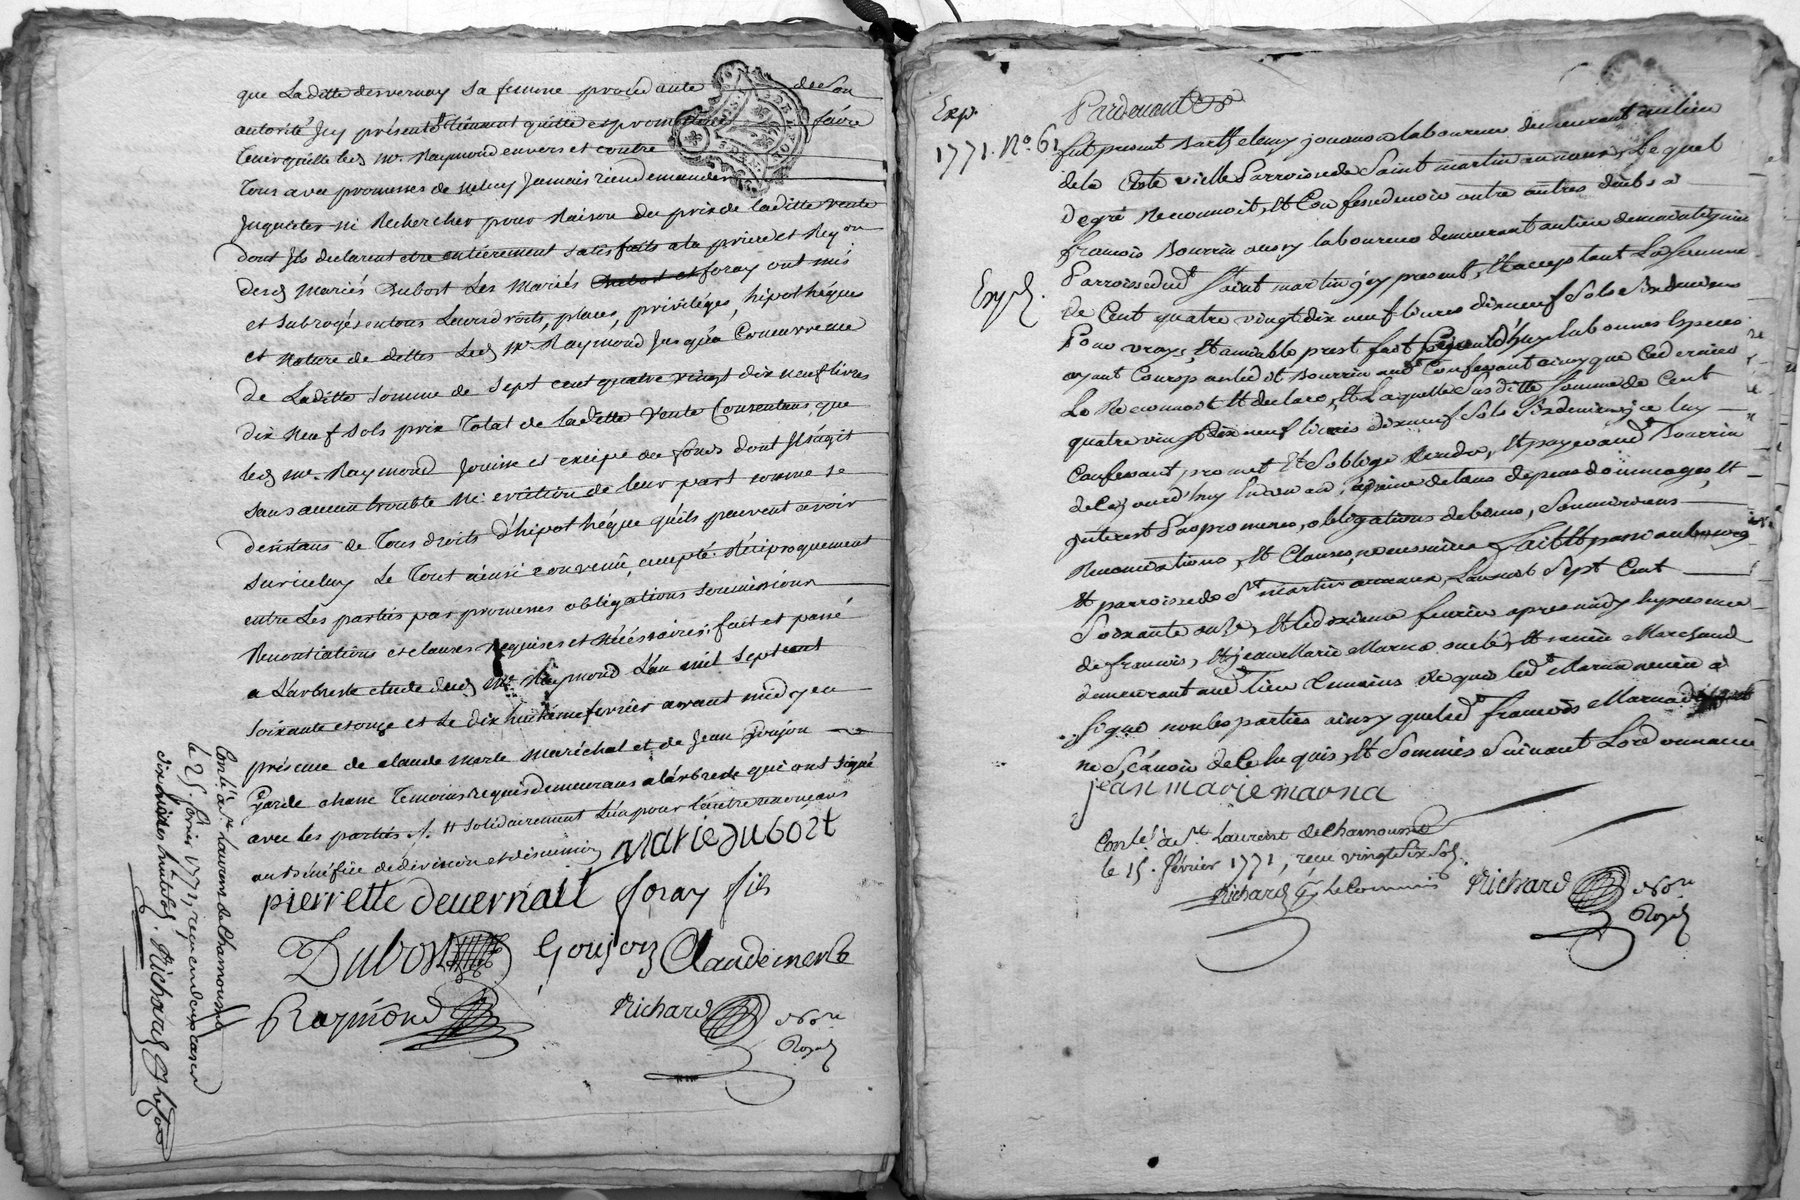 que Laditte desvernay sa femme procedante de son
autorité Icy présents tiennent quitte et promettent faire
tenir quitte led. Me. Raymond envers et contre
tous avec promesses de ne luy Jamais rien demander
Inquieter ni Rechercher pour Raison du prix de laditte vente
dont Ils declarent etre entièrement satisfaits a la prière et Req.on
desd. mariés Dubost Les Mariés foray ont mis
et subrogés en tous Leurs droits, places, privilèges, hipothéques
et Nature de dettes Led. Me. Raymond Jusqu'a Concurrence
de Laditte somme de sept cent quatre vingt dix neuf livres
dix neuf sols prix Total de laditte vente Consentans que
led. Me. Raymond Jouisse et excipe du fonds dont Il s'agit
sans aucun trouble ni eviction de leur part comme se
desistans de Tous droits d'hipothéque qu'ils peuvent avoir
sur iceluy Le Tout ainsi convenu, accepté Réciproquement
entre Les parties par promesses obligations soumissions
Renontiations et clauses Requises et nécéssaires; fait et passé
a L'arbresle etude dud. Me. Raymond L'an mil sept cent
soixante et onze et Le dix huitieme fevrier avant midy en
présence de claude merle maréchal et de Jean Goujon
Garde chasse Temoins requis demeurans a l'arbresle qui ont signé
avec les parties ./. et solidairement L'un pour l'autre renonçans
au bénéfice de division et discution Marie Dubost
pierrette deuernail foray fils
Dubost Goujon Claude merle
Raymond Richard Nore
Royal
Conlé. à St. Laurent de Chamousset
le 25 février 1771, reçu
Richard
Exp.
1771. No. 61
Par devant
fut present Barthelemy jouano laboureur demeurant au lieu
de la Coste ville Parroisse de Saint martin annaux, Lequel
de gré Reconnoit, et Confesse devoir entre autres debs à
francois Bourrin aussy laboureur demeurant au lieu de
Expd.
Parroisse dudt. Saint martin jcy present, et acceptant La Somme
de Cent quatre vingt dix neuf livres dixneuf Sols Six deniers
Pour vray, et amiable prest fait en bonnes Especes
ayant Cours par led. Bourrin audt. Confessant ainsy que Ce dernier
Le Reconnoit et declare, et Laquelle Susditte Somme de Cent
quatre vingt dix neuf livres dixneuf Sols Six deniers, jceluy
Confessant, promet et S'oblige Rendre, et payer audt. Bourrin
de Cejourd'huy En un an, a peine de tous depens dommages, et
jnterest Par promesses, obligations de biens, Soumissions
Renonciations, et Clauses necessaires fait et passé au bourg
et parroisse de St. martin annaux, Lan mil Sept Cent
Soixante onze, et le dixieme fevrier apres midy En presence
de francois, et jean Marie Marna oncle, et neveu Marchand
demeurant audt. Lieu temoins Requis ledt. Marna neveu a
Signé non les parties ainsy que led. francois Marna
ne Scavoir de Ce Enquis, et Sommés Suivant Lordonnance
jean marie marna
Conlé. à St. Laurent de Chamousset
le 15. février 1771, reçu vingt Six Sols.
Richard Richard Nore
Royal